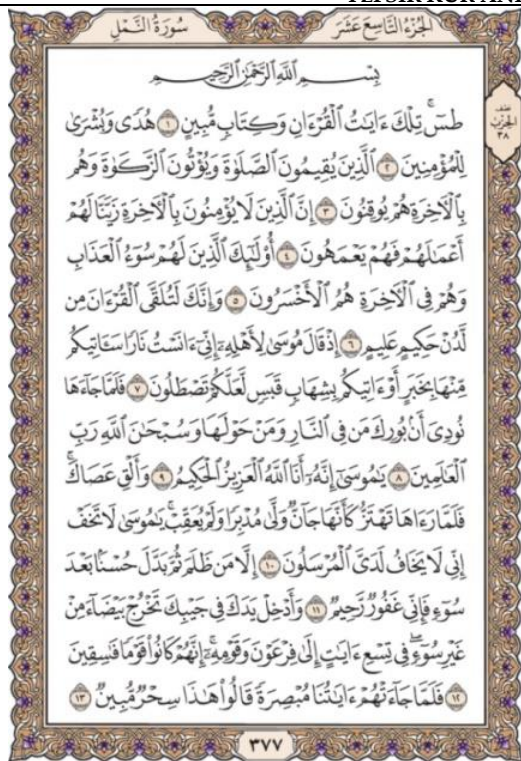 الجُزْءُ التَّاسِعَ عَشَرَ
سُورَةُ النَّمْلِ
نصف
الحزب
٣٨
بِسْمِ اللَّهِ الرَّحْمَٰنِ الرَّحِيمِ
طسٓ ۚ تِلْكَ ءَايَٰتُ ٱلْقُرْءَانِ وَكِتَابٍ مُّبِينٍ ١ هُدًى وَبُشْرَىٰ
لِلْمُؤْمِنِينَ ٢ ٱلَّذِينَ يُقِيمُونَ ٱلصَّلَوٰةَ وَيُؤْتُونَ ٱلزَّكَوٰةَ وَهُم
بِٱلْءَاخِرَةِ هُمْ يُوقِنُونَ ٣ إِنَّ ٱلَّذِينَ لَا يُؤْمِنُونَ بِٱلْءَاخِرَةِ زَيَّنَّا لَهُمْ
أَعْمَٰلَهُمْ فَهُمْ يَعْمَهُونَ ٤ أُو۟لَٰٓئِكَ ٱلَّذِينَ لَهُمْ سُوٓءُ ٱلْعَذَابِ
وَهُمْ فِى ٱلْءَاخِرَةِ هُمُ ٱلْأَخْسَرُونَ ٥ وَإِنَّكَ لَتُلَقَّى ٱلْقُرْءَانَ مِن
لَّدُنْ حَكِيمٍ عَلِيمٍ ٦ إِذْ قَالَ مُوسَىٰ لِأَهْلِهِۦٓ إِنِّىٓ ءَانَسْتُ نَارًا سَـَٔاتِيكُم
مِّنْهَا بِخَبَرٍ أَوْ ءَاتِيكُم بِشِهَابٍ قَبَسٍ لَّعَلَّكُمْ تَصْطَلُونَ ٧ فَلَمَّا جَآءَهَا
نُودِىَ أَنۢ بُورِكَ مَن فِى ٱلنَّارِ وَمَنْ حَوْلَهَا وَسُبْحَٰنَ ٱللَّهِ رَبِّ
ٱلْعَٰلَمِينَ ٨ يَٰمُوسَىٰٓ إِنَّهُۥٓ أَنَا ٱللَّهُ ٱلْعَزِيزُ ٱلْحَكِيمُ ٩ وَأَلْقِ عَصَاكَ ۚ
فَلَمَّا رَءَاهَا تَهْتَزُّ كَأَنَّهَا جَآنٌّ وَلَّىٰ مُدْبِرًا وَلَمْ يُعَقِّبْ ۚ يَٰمُوسَىٰ لَا تَخَفْ
إِنِّى لَا يَخَافُ لَدَىَّ ٱلْمُرْسَلُونَ ١٠ إِلَّا مَن ظَلَمَ ثُمَّ بَدَّلَ حُسْنًۢا بَعْدَ
سُوٓءٍ فَإِنِّى غَفُورٌ رَّحِيمٌ ١١ وَأَدْخِلْ يَدَكَ فِى جَيْبِكَ تَخْرُجْ بَيْضَآءَ مِنْ
غَيْرِ سُوٓءٍ ۖ فِى تِسْعِ ءَايَٰتٍ إِلَىٰ فِرْعَوْنَ وَقَوْمِهِۦٓ ۚ إِنَّهُمْ كَانُوا۟ قَوْمًا فَٰسِقِينَ
١٢ فَلَمَّا جَآءَتْهُمْ ءَايَٰتُنَا مُبْصِرَةً قَالُوا۟ هَٰذَا سِحْرٌ مُّبِينٌ ١٣
٣٧٧